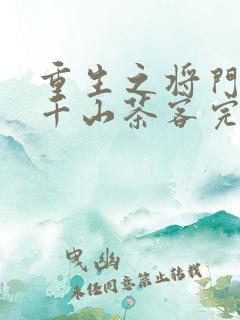 重生之将门
千山茶客完
曳幽
未经同意禁止转载